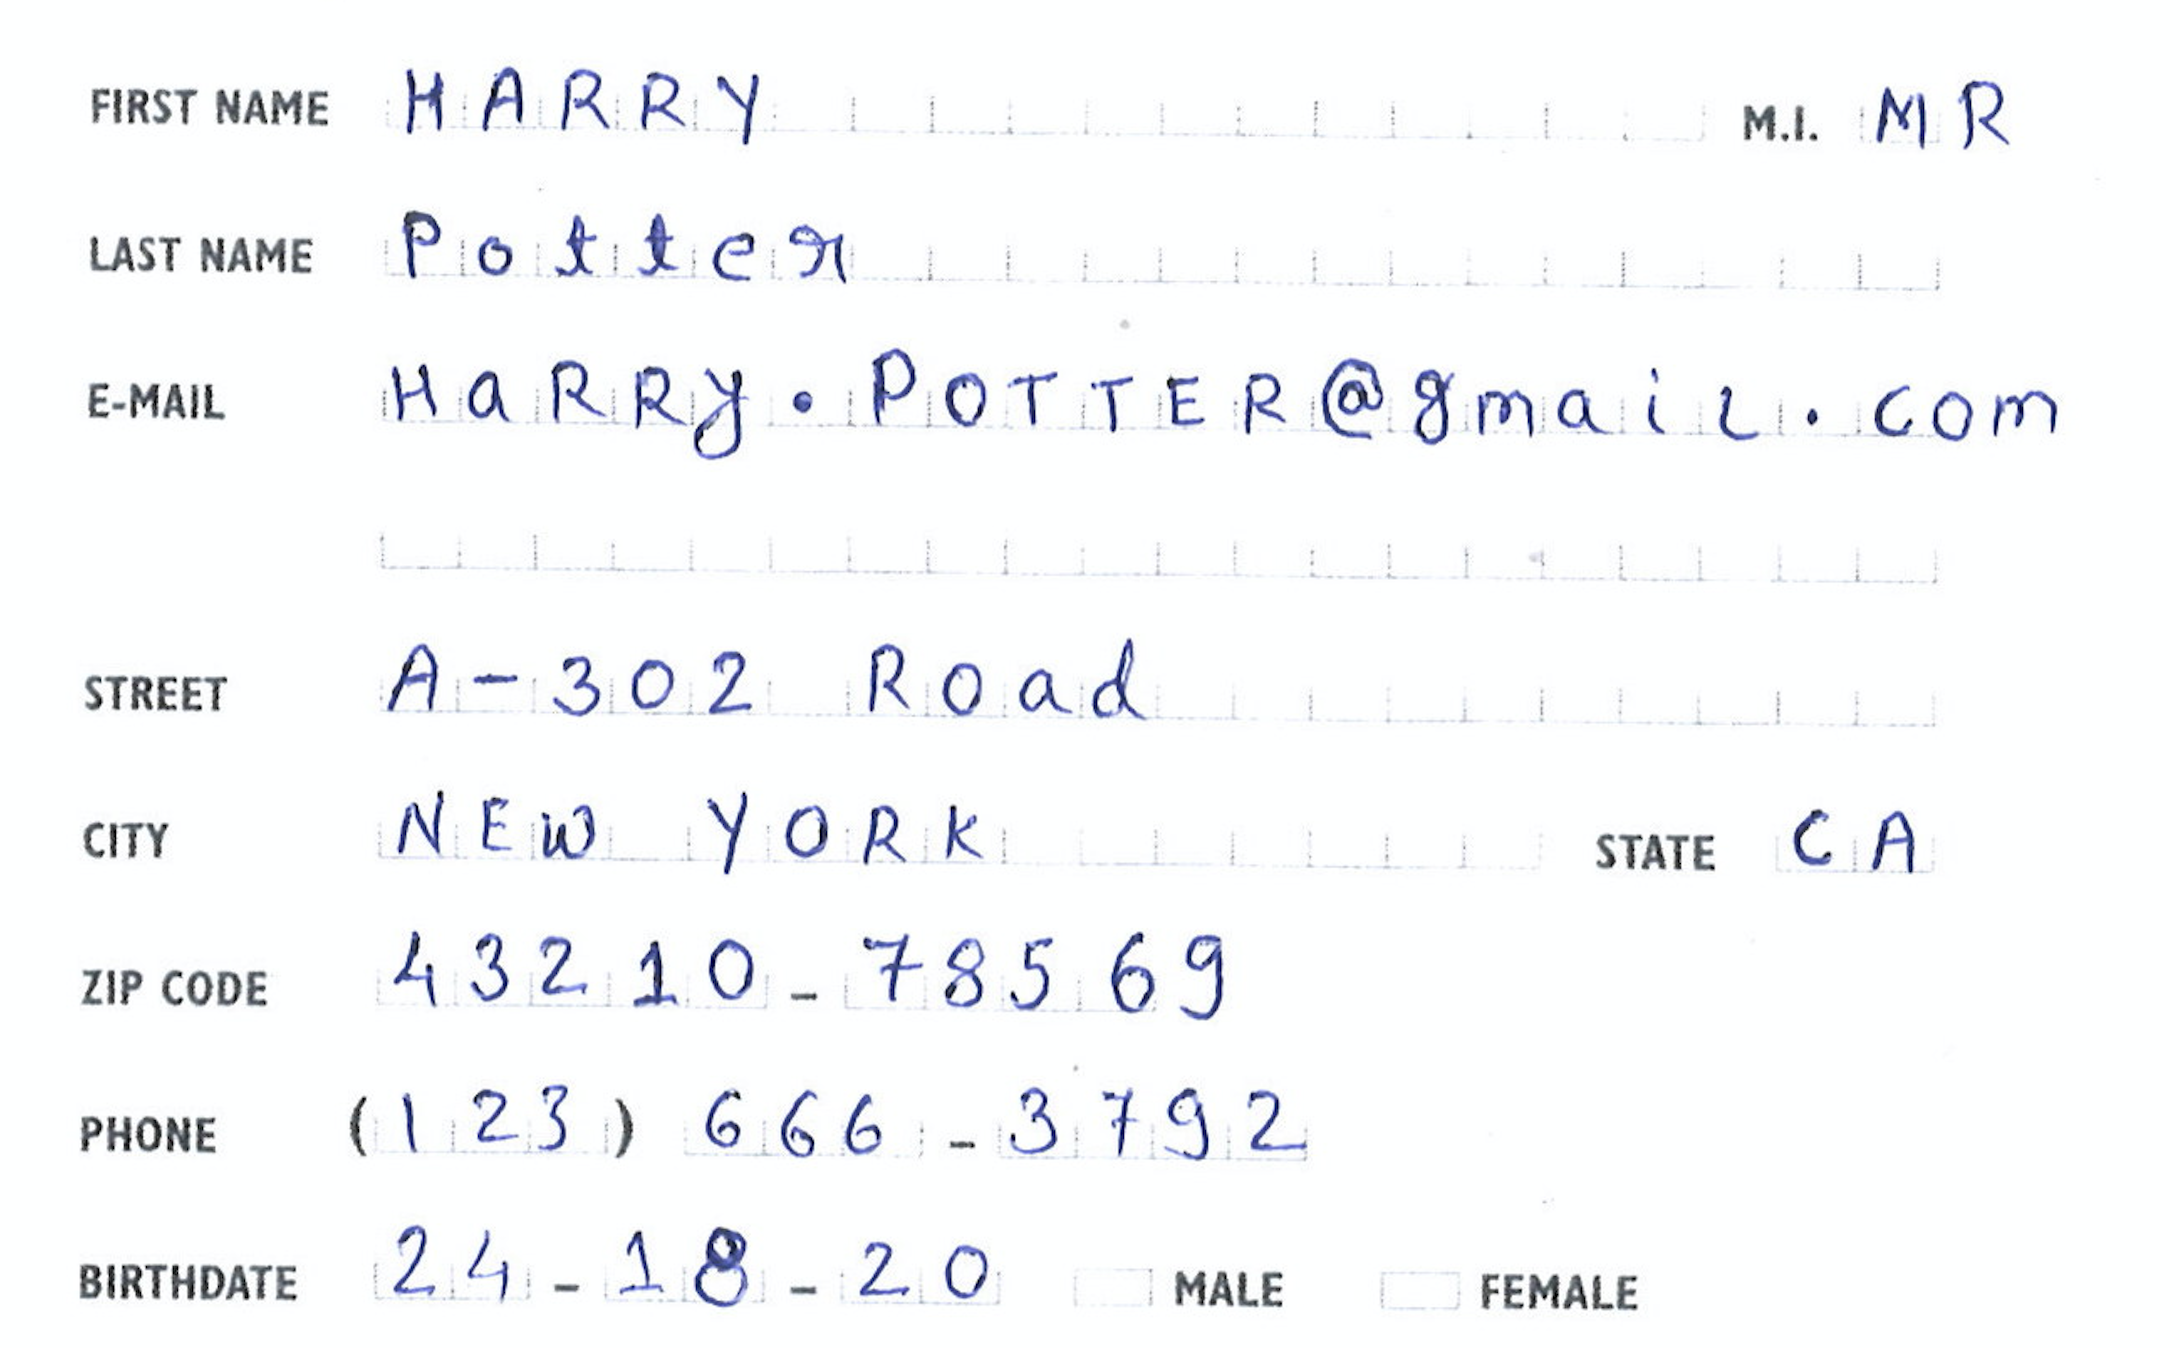 FIRST NAME HARRY M.I. MR
LAST NAME Potter
E-MAIL HaRRy.POTTER@gmail.com
STREET A-302 Road
CITY NEW YORK STATE CA
ZIP CODE 43210-78569
PHONE (123) 666-3792
BIRTHDATE 24-18-20 MALE FEMALE